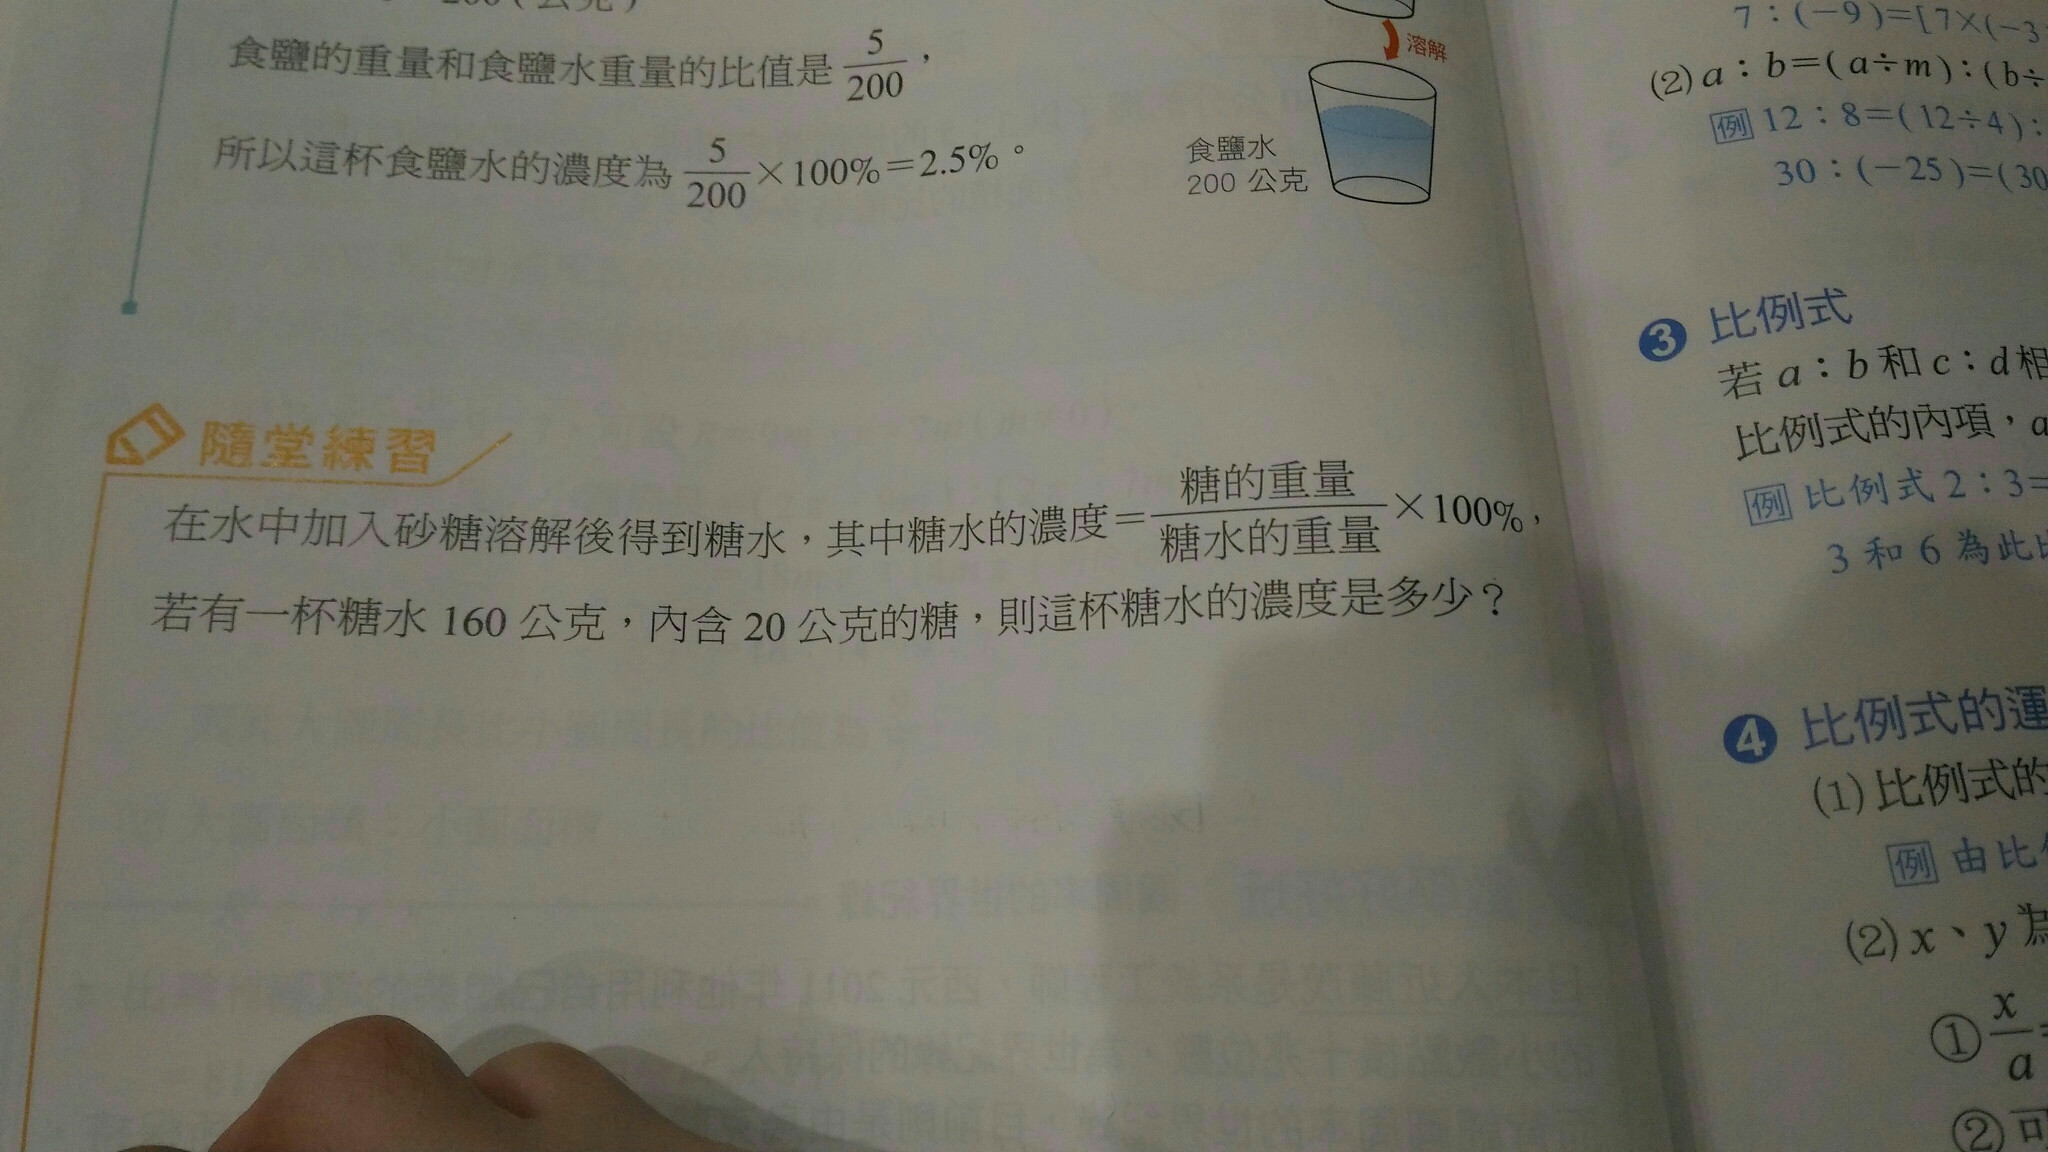 200(公克)
食鹽的重量和食鹽水重量的比值是 5/200，
所以這杯食鹽水的濃度為 5/200 ×100%=2.5%。
溶解
食鹽水
200 公克
隨堂練習
在水中加入砂糖溶解後得到糖水，其中糖水的濃度= 糖的重量/糖水的重量 ×100%，
若有一杯糖水 160 公克，內含 20 公克的糖，則這杯糖水的濃度是多少？
7：(－9)=[7×(－3
(2) a：b=(a÷m)：(b÷
例 12：8=(12÷4)：
30：(－25)=(30
3 比例式
若 a：b 和 c：d 相
比例式的內項，a
例 比例式 2：3=
3 和 6 為此比
4 比例式的運
(1) 比例式的
例 由比
(2) x、y 為
① x/a =
② 可